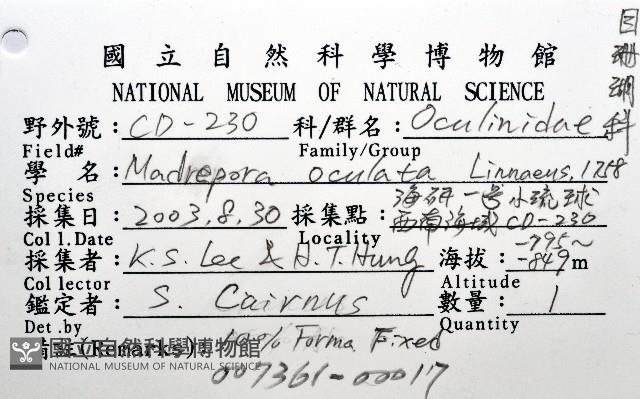 目珊瑚科
國立自然科學博物館
NATIONAL MUSEUM OF NATURAL SCIENCE
野外號：CD-230 科/群名：Oculinidae
Field# Family/Group
學 名：Madrepora oculata Linnaeus, 1758
Species 海研一號小琉球
採集日：2003.8.30 採集點：西南海域 CD-230
Coll.Date Locality -795~
採集者：K.S. Lee & H.T. Hung 海拔：-849m
Collector Altitude
鑑定者：S. Cairnus 數量：1
Det.by Quantity
(Remarks) 10% Forma Fixed
國立自然科學博物館
NATIONAL MUSEUM OF NATURAL SCIENCE
007361-00017